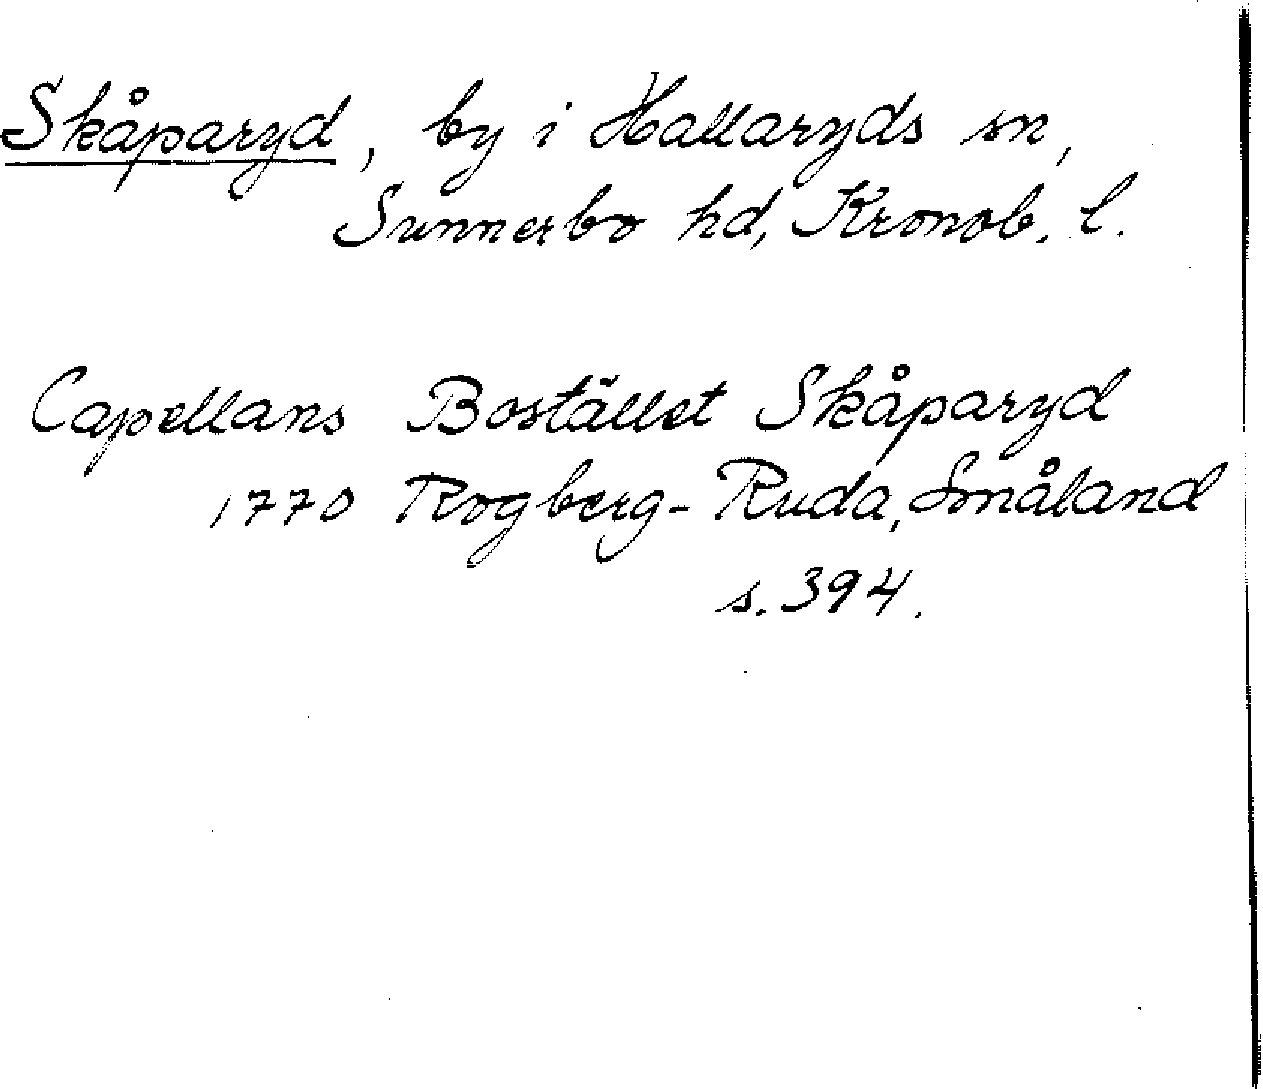 Skåparyd, by i Hallaryds sn,
Sunnerbo hd, Kronob. l.
Capellans Bostället Skåparyd
1770 Rogberg-Ruda, Småland
s. 394.